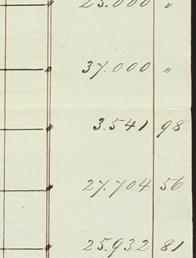 25.000 "
37.000 "
3.541 98
27.704 56
25.932 81